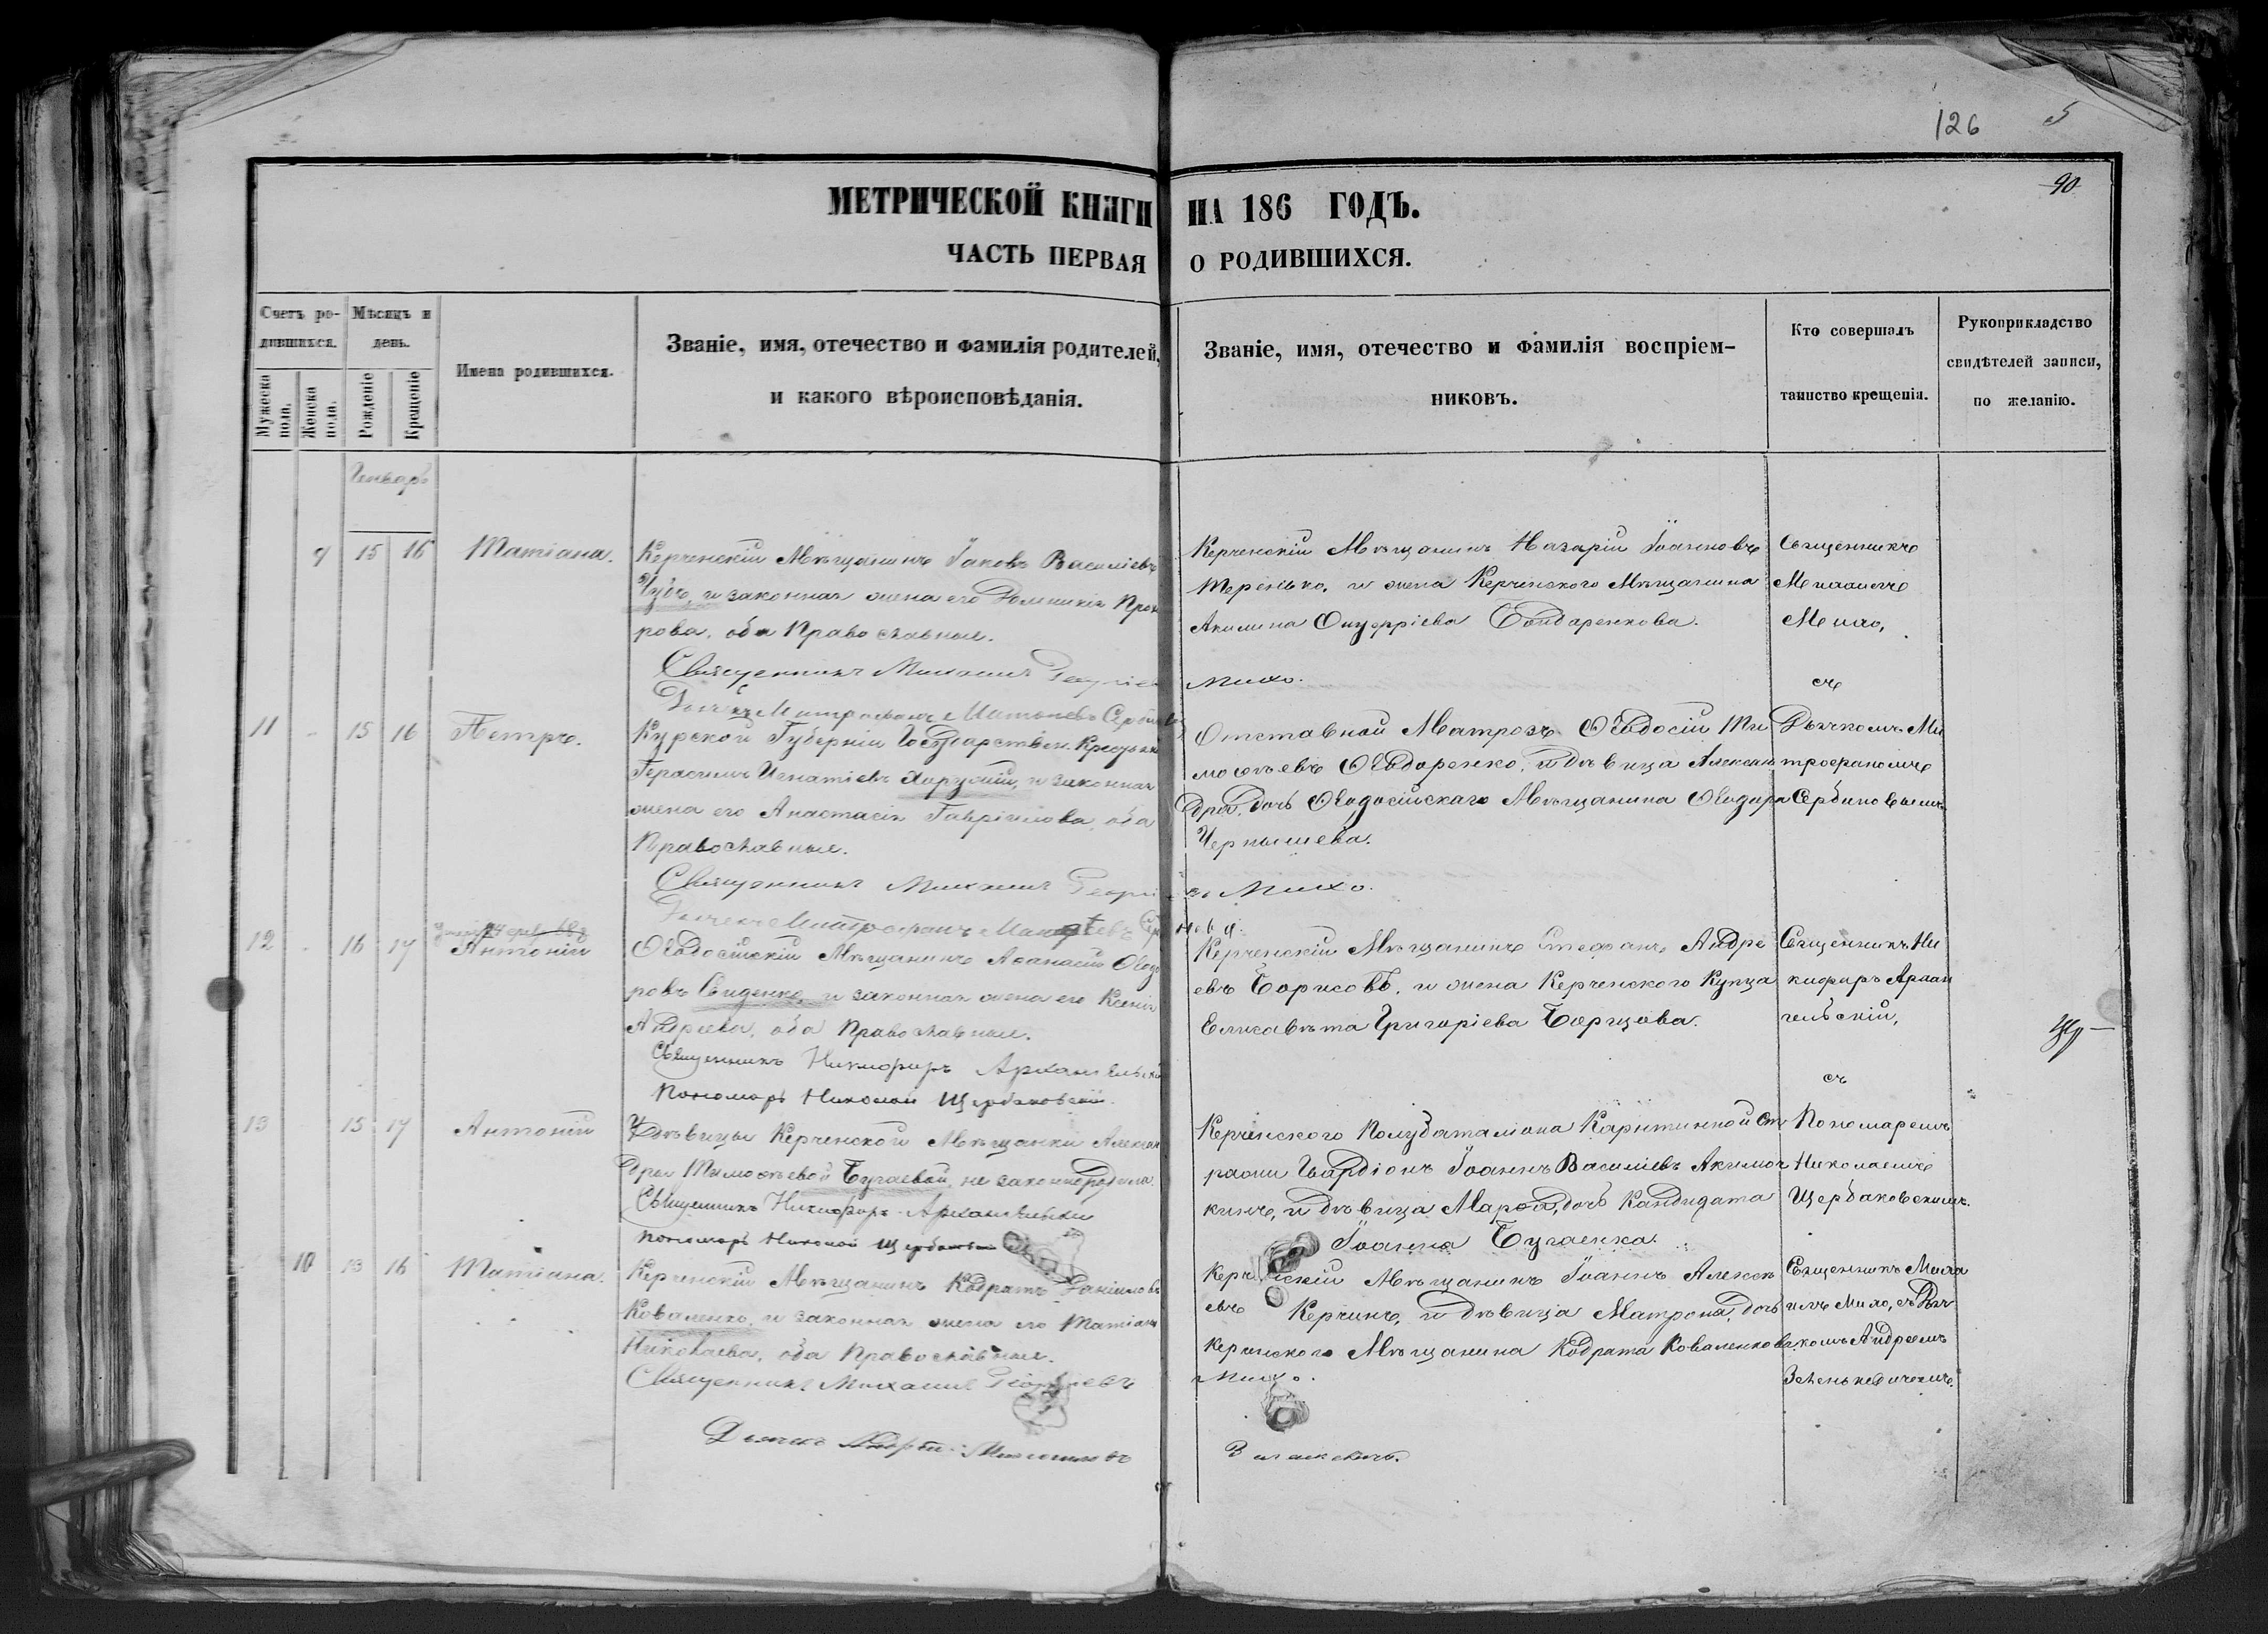 126 5
90
МЕТРИЧЕСКОЙ КНИГИ НА 186 ГОДЪ.
ЧАСТЬ ПЕРВАЯ О РОДИВШИХСЯ.
Счетъ ро-
дившихся.
Мужеска
пола.
Женска
пола.
Мѣсяцъ и
день.
Рожденіе
Крещеніе
Имена родившихся.
Званіе, имя, отечество и фамилія родителей,
и какого вѣроисповѣданія.
Званіе, имя, отечество и фамилія воспріем-
никовъ.
Кто совершалъ
таинство крещенія.
Рукоприкладство
свидѣтелей записи,
по желанію.
Генварь
9 15 16 Татіана.
Керченскій Мѣщанинъ Іаковъ Василіевъ
Чубъ, и законная жена его Домникія Прох
рова, оба Православные.
Священникъ Михаилъ
Керченскій Мѣщанинъ Назарій Іоанновъ
Теренько, и жена Керченского Мѣщанина
Акилина Бондаренкова.
Михо.
Священникъ
Михаилъ
Михо,
съ
Дьячкомъ Ми
трофаномъ
Сербиновымъ
11 - 15 16 Петръ.
Курской Губерніи Государствен. Крестьян
Герасимъ Игнатіевъ Харужій, и законная
жена его Анастасія Гавріилова, оба
Православные.
Священникъ Михаилъ Георгі
Отставной Матрозъ Ѳеодосій Ти
моѳѣевъ Ѳеодоренко, и дѣвица Алексан
дра, дочь Ѳеодосійскаго Мѣщанина Ѳеодора
Чернышева.
въ Михо.
12 - 16 17 Антоній
Ѳеодосійскій Мѣщанинъ Аѳанасій Ѳеодо
ровъ Сиденко, и законная жена его Ксенія
Андреева, оба Православные.
Священникъ Никифоръ Архангельскій
Пономарь Николай Щербаковскій.
Керченскій Мѣщанинъ Стефанъ Андре
евъ Борисовъ, и жена Керченского Купца
Елисавѣта Григоріева Борцова.
Священникъ Ни
кифоръ Архан
гельскій,
съ
Пономаремъ
Николаемъ
Щербаковскимъ.
13 15 17 Антоній
У дѣвицы Керченской Мѣщанки Алексан
дры Тимоѳѣевой Бугаевой, не законнорожд
Священникъ Никифоръ Архангельскій
Пономарь Николай
Керченского Полубаталіона Карнтинной Ст
ражи Гвардіонъ Іоаннъ Василіевъ Акимоч
кинъ, и дѣвица Марѳа, дочь Кандидата
Іоанна Бугаенка.
10 13 16 Татіана.
Керченскій Мѣщанинъ Кодратъ Даніиловъ
Коваленко, и законная жена его Татіана
Николаева, оба Православные.
Священникъ Михаилъ Георгіевъ
Дьячекъ Андрей
Керченскій Мѣщанинъ Іоаннъ Алексѣ
евъ Керчинъ, и дѣвица Матрона, дочь
Керчнского Мѣщанина Кодрата Коваленкова.
Михо.
Священникъ Миха
илъ Михо, съ Дья
комъ Андреемъ
Зенькевичемъ.